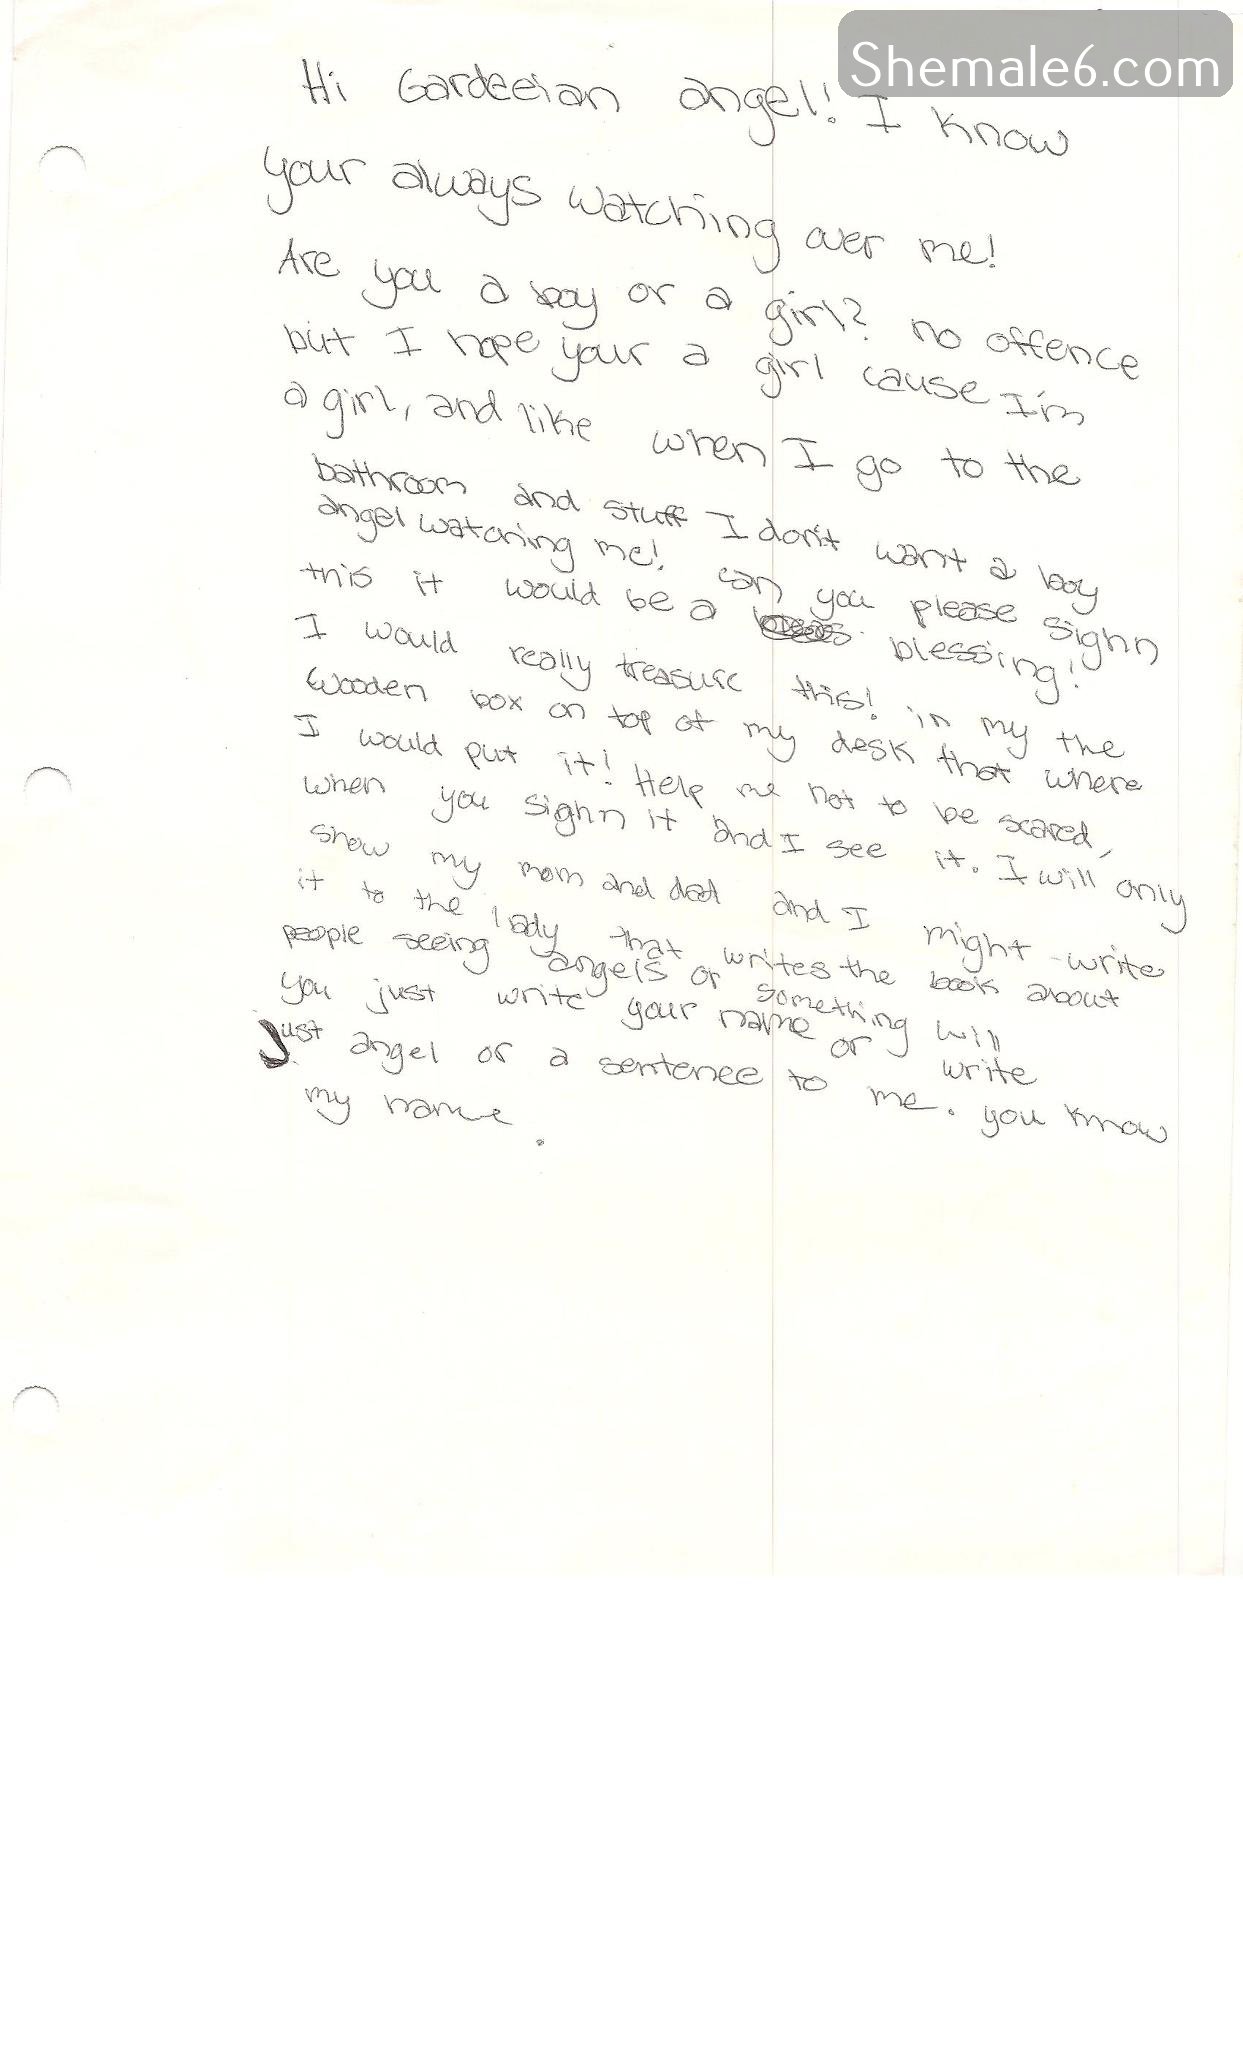 Shemale6.com
Hi Gardeeian angel! I know
your always watching over me!
Are you a boy or a girl? no offence
but I hope your a girl cause I'm
a girl, and like when I go to the
bathroom and stuff I don't want a boy
angel watching me! can you please sighn
this it would be a blessing!
I would really treasure this! in my the
wooden box on top of my desk that where
I would put it! Help me not to be scared,
when you sighn it and I see it. I will only
show my mom and dad and I might write
it to the lady that writes the book about
people seeing angels or something will
you just write your name or write
Just angel or a sentence to me. you know
my name.